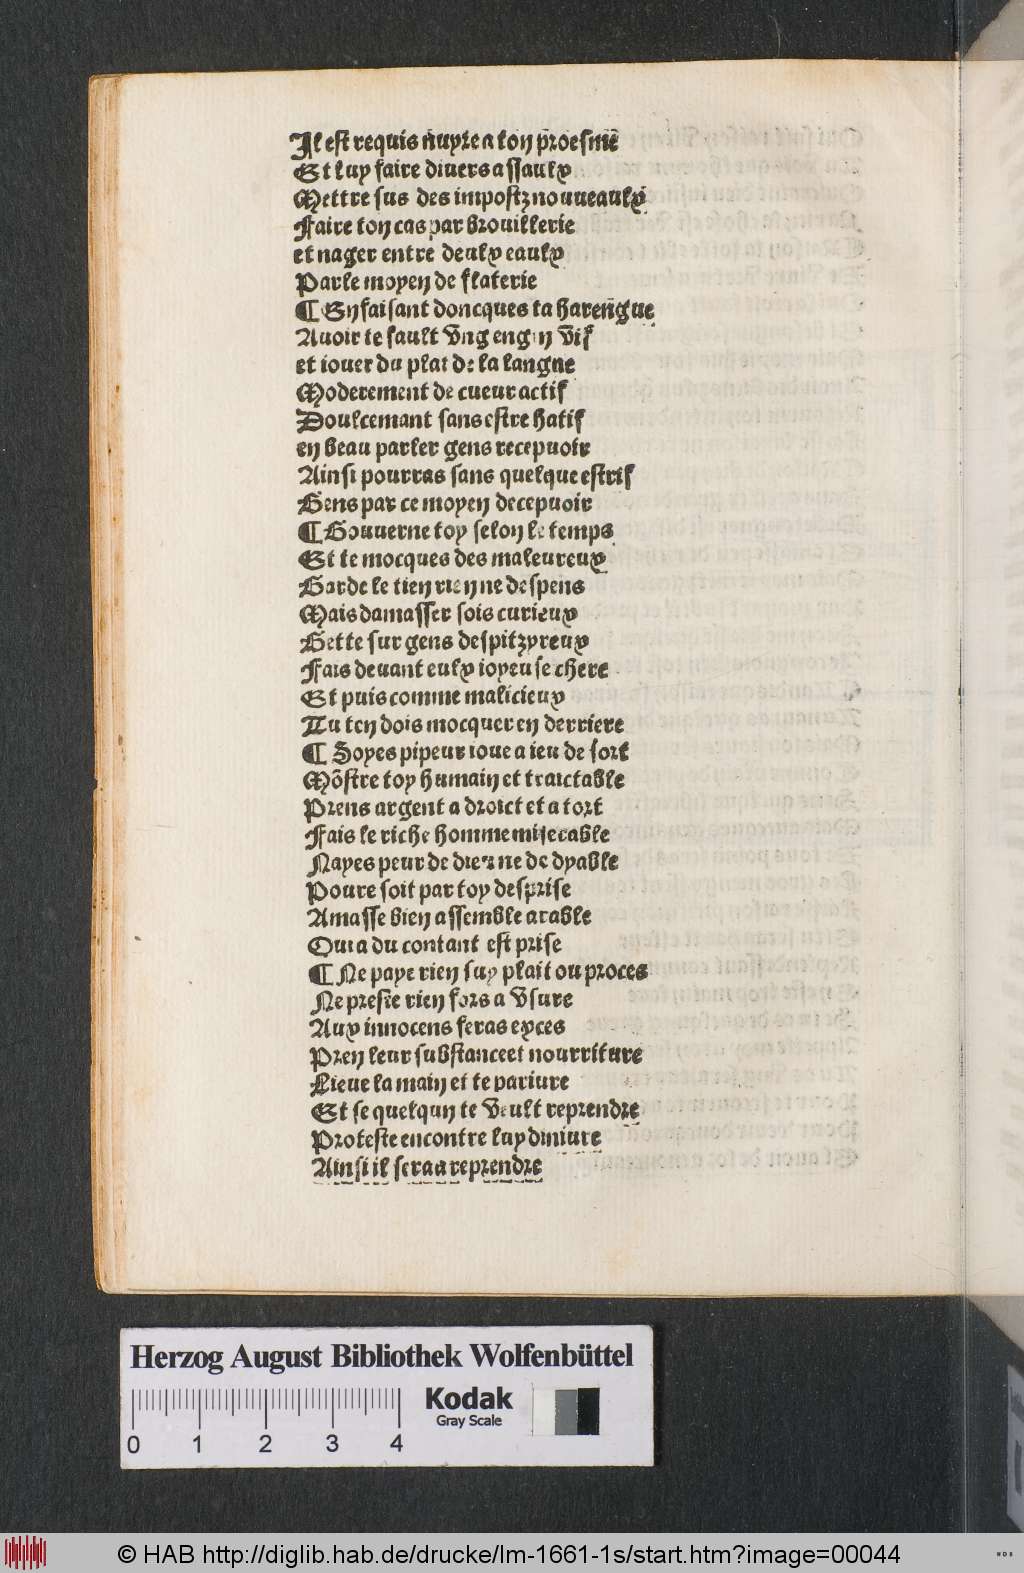 Il est requis nuyre a ton proesmē
Et luy faire diuers assaulx
Mettre sus des impostz nouueaulx
Faire ton cas par brouillerie
et nager entre deulx eaulx
Par le moyen de flaterie
¶ En faisant doncques ta harengue
Auoir te fault vng engin vif
et iouer du plat de la langue
Moderement de cueur actif
Doulcemant sans estre hatif
en beau parler gens recepuoir
Ainsi pourras sans quelque estrif
Gens par ce moyen decepuoir
¶ Gouuerne toy selon le temps
Et te mocques des maleureux
Garde le tien rien ne despens
Mais damasser sois curieux
Gette sur gens despitz yreux
Fais deuant eulx ioyeuse chere
Et puis comme malicieux
Tu ten dois mocquer en derriere
¶ Soyes pipeur ioue a ieu de sort
Mōstre toy humain et traictable
Prens argent a droict et a tort
Fais le riche homme miserable
Nayes peur de dieu ne de dyable
Poure soit par toy desprise
Amasse bien assemble arable
Qui a du contant est prise
¶ Ne paye rien suy plait ou proces
Ne preste rien fors a vsure
Aux innocens feras exces
Pren leur substance et nourriture
Lieue la main et te pariure
Et se quelqun te veult reprendre
Proteste encontre luy diniure
Ainsi il sera a reprendre
Herzog August Bibliothek Wolfenbüttel
Kodak
Gray Scale
0 1 2 3 4
© HAB http://diglib.hab.de/drucke/lm-1661-1s/start.htm?image=00044